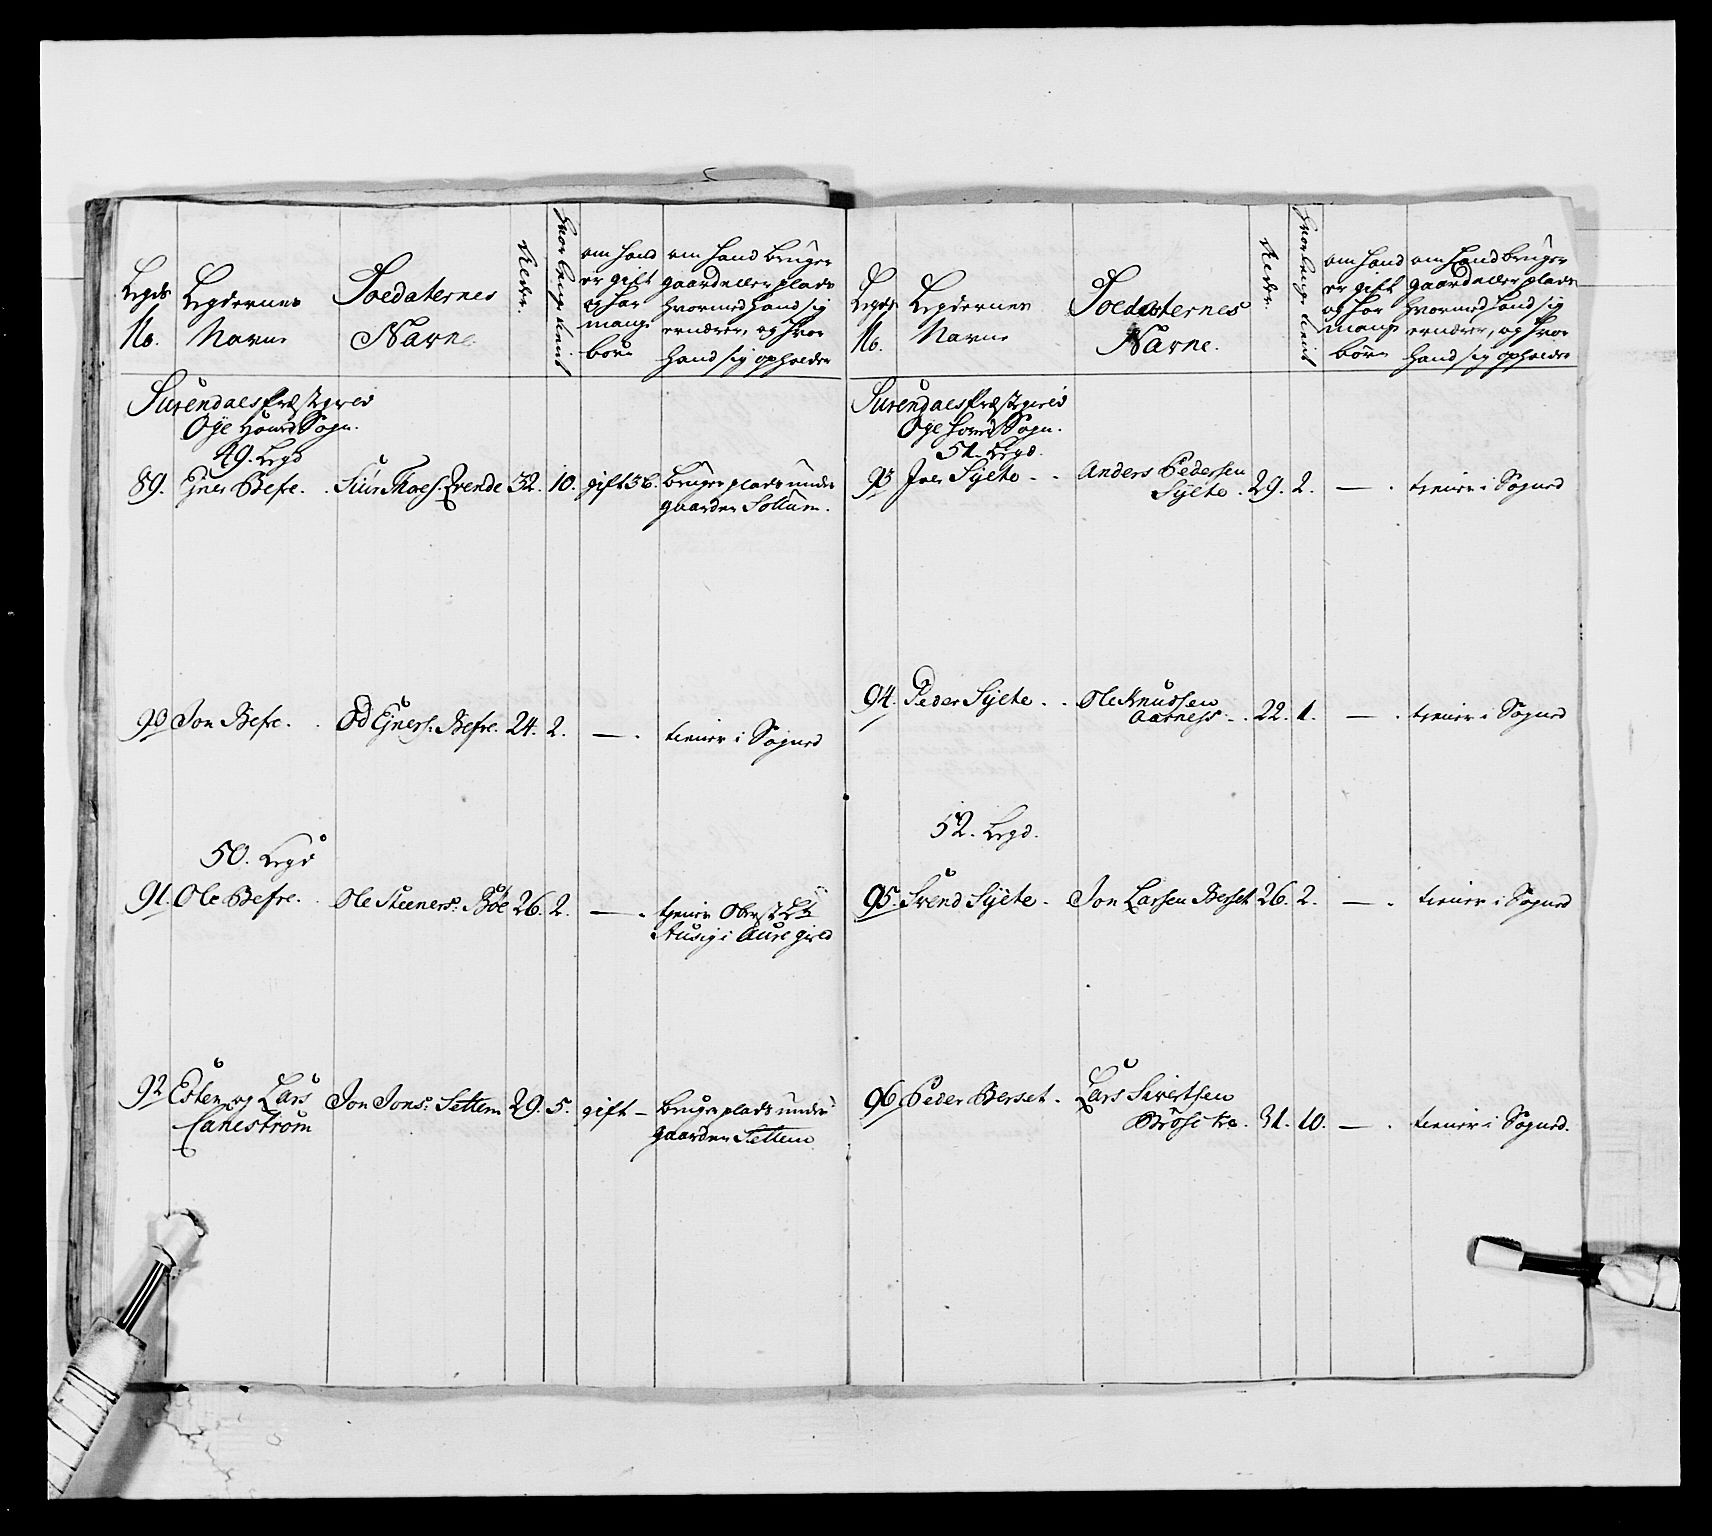 Legds No. | Legdernes Navne | Soldaternes Navne. | Alder. | hvor lenge tient | om hand er gift og har mange börn | om hand bruger gaard eller plads hvormed hand sig ernærer, og hvor hand sig opholder
Surendals Præstegield
Öÿe Hoved Sogn.
49. Legd
89. Ejner Befre. . Siur Thoes. Qvende 32. 10. gift 3 b. bruger plads under
gaarden Sollum.
90 Jon Befre. . Od Ejners. Befre. 24. 2. — . tiener i Sognet
50. Legd
91. Ole Befre. . Ole Steeners. Böe 26. 2. — . tiener Oberst Lt
i Aure gield
92 Esten og Lars Jon Jons. Settem 29. 5. gift — bruger plads under
Caneström gaarden Settem
Legds No. | Legdernes Navne | Soldaternes Navne. | Alder. | hvor lenge tient | om hand er gift og har mange börn | om hand bruger gaard eller plads hvormed hand sig ernærer, og hvor hand sig opholder
Surendals Præstegield
Öÿe hoved Sogn.
51. Legd.
93 Joe Sÿlte . . Anders Pedersen
Sÿlte . 29. 2. — . tiener i Sognet
94. Peder Sÿlte . . Ole Knudsen
Aarness . . 22. 1. — . tiener i Sognet
52. Legd.
95. Svend Sÿlte . Jon Larsen Berset 26. 2. — . tiener i Sognet
96. Peder Berset . Lars Sivertsen
31. 10. — . tiener i Sognet.